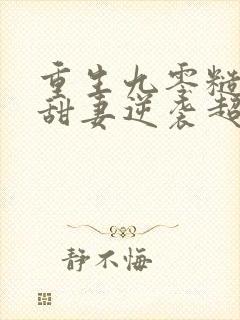 重生九零糙
甜妻逆袭超
静不悔